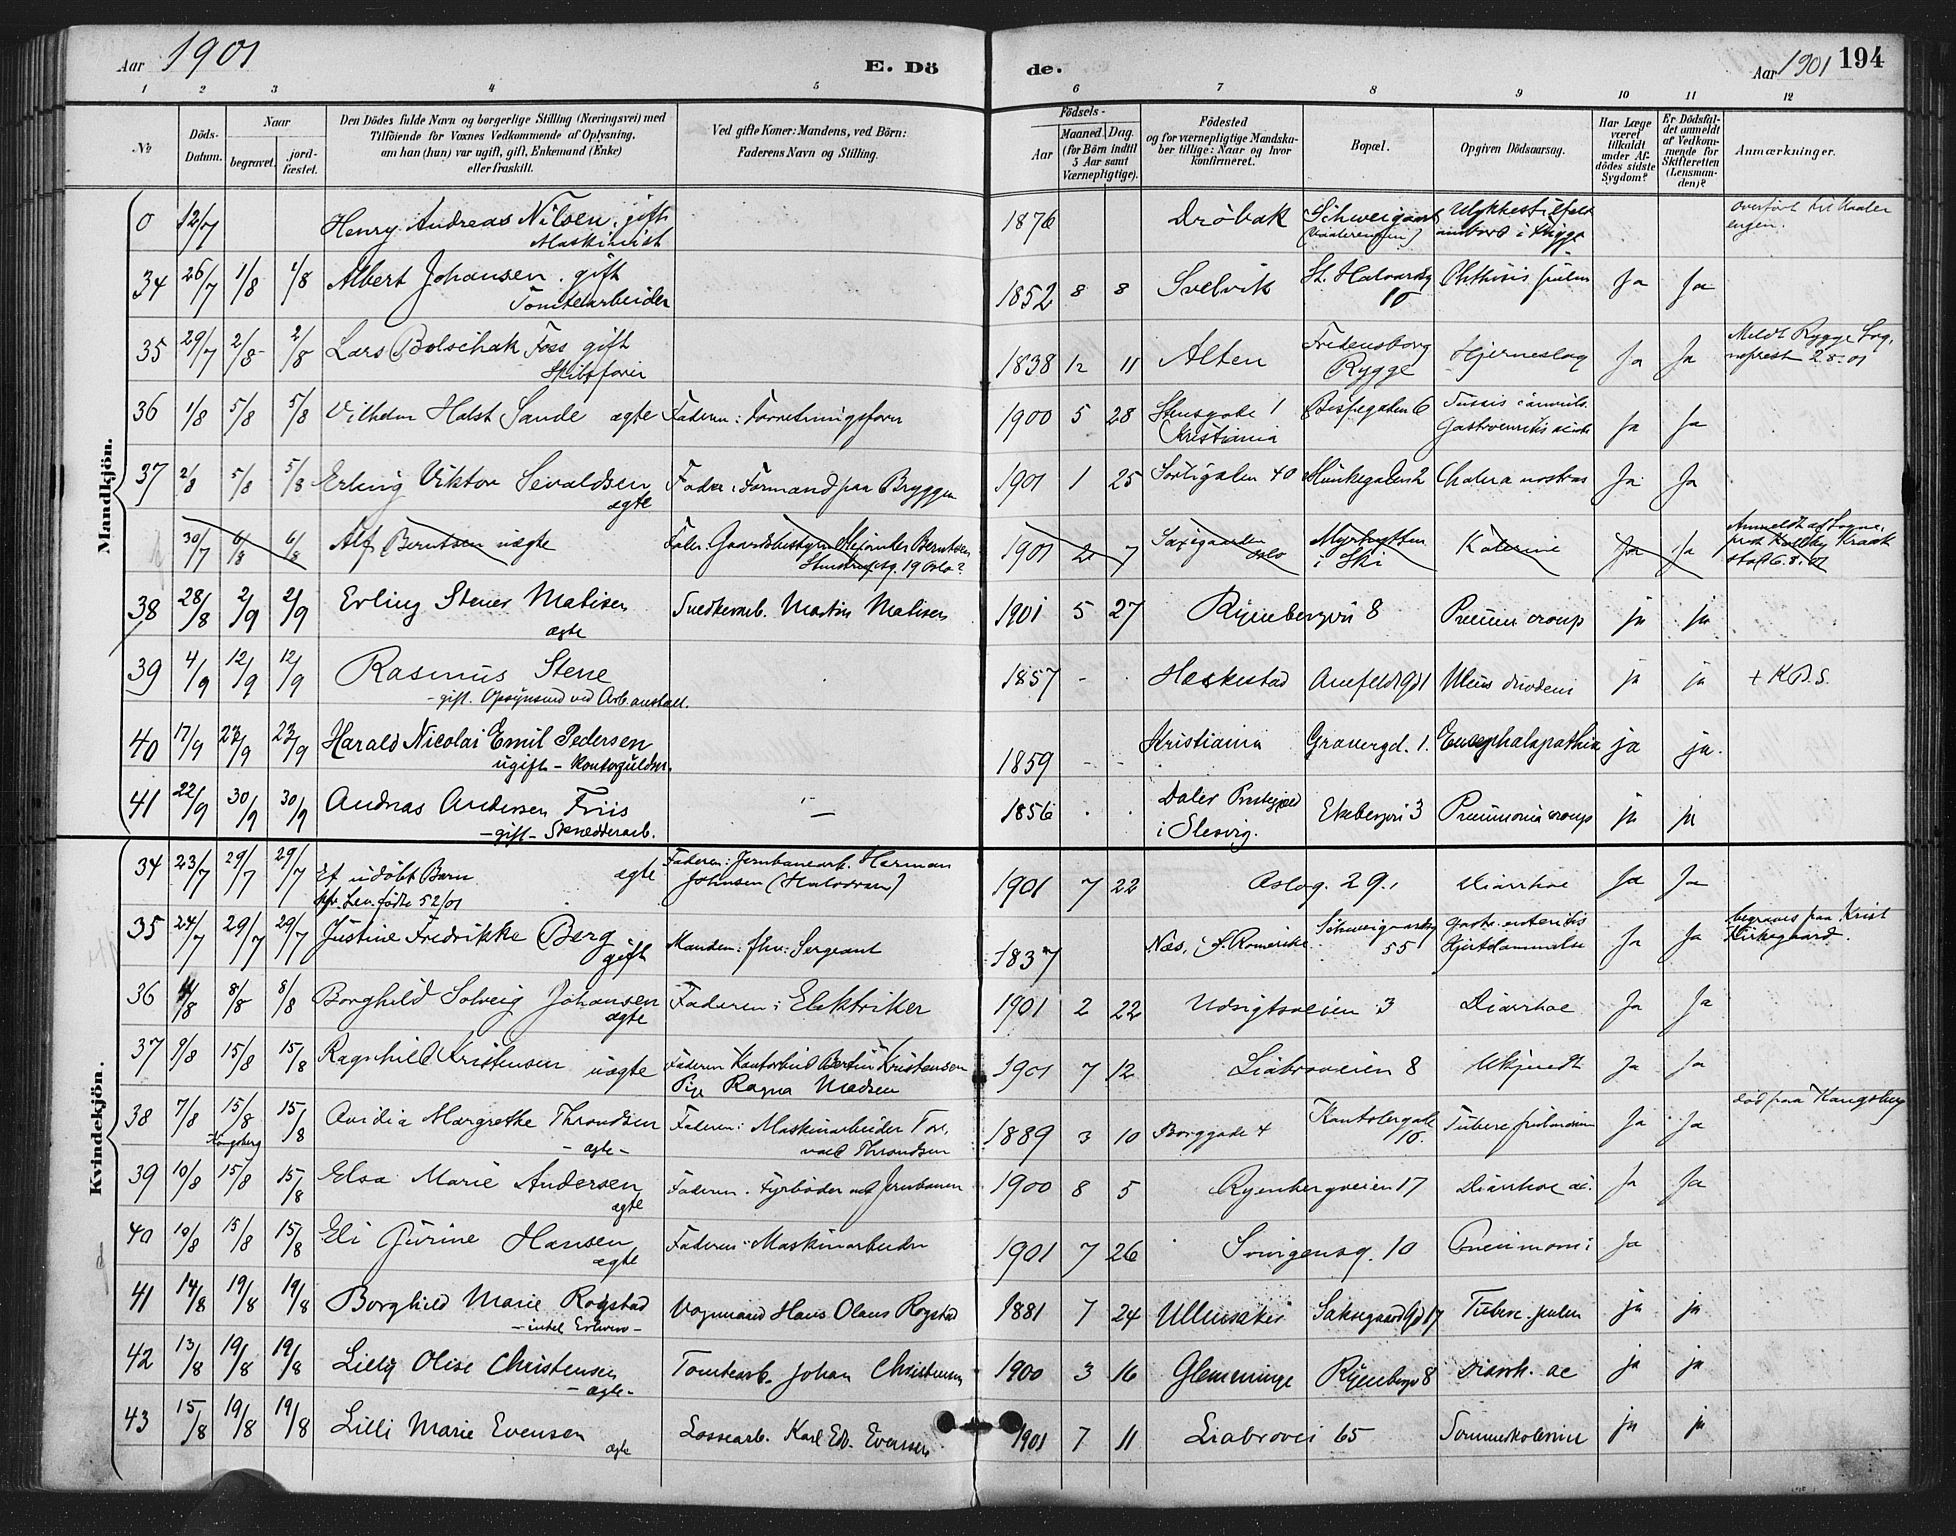 Aar 1901
E. Dö
de.
Aar 1901 194
1 2 3 4 5 6 7 8 9 10 11 12
No
Döds-Datum.
Naar
begravet.
jordfæstet.
Den Dödes fulde Navn og borgerlige Stilling (Næringsvei) med
Tilföiende for Voxnes Vedkommende af Oplysning,
om han (hun) var ugift, gift, Enkemand (Enke)
eller fraskilt.
Ved gifte Koner: Mandens, ved Börn:
Faderens Navn og Stilling.
Födsels-
Aar
Maaned. Dag.
(for Börn indtil
5 Aar samt
Værnepligtige).
Födested
og for værnepligtige Mandska-
ber tillige: Naar og hvor
konfirmeret.
Bopæl.
Opgiven Dödsaarsag.
Har Læge
været
tilkaldt
under Af-
dödes sidste
Sygdom?
Er Dödsfal-
det anmeldt
af Vedkom-
mende for
Skifteretten
(Lensman-
den)?
Anmærkninger.
Mandkjön.
0 12/7 Henry Andreas Nilsen. gift 1876 Dröbak
Maskinist
34 26/7 1/8 1/8 Albert Johansen. gift 1852 8 8 Svelvik St. Halvardsg 10 Phthisis pulm Ja Ja
Tomtearbeider
35 29/7 2/8 2/8 Lars Bolschak Foss gift 1838 12 11 Alten Fredensborg Rygge Hjerneslag Ja Ja Meldt Rygge Sog.
neprest 2-8-01
Skibsförer
36 1/8 5/8 5/8 Vilhelm Holst Sande ægte Faderen: Forretningsförer 1900 5 28 Stensgade 1 Kristiania Bispegaten 6 Ja Ja
37 2/8 5/8 5/8 Erling Viktor Sevaldsen ægte Fader: Formand paa Bryggen 1901 1 25 40 Munkegaden 2 Cholera nostras Ja Ja
30/7 6/8 6/8 Alf Berntsen uægte 1901 2 7 Saxegaarden Oslo i Ski Ja Ja
38 28/8 2/9 2/9 Erling Stener Matisen ægte Snedkerarb. Martin Matisen 1901 5 27 Ryenbergvei 8 Pneum croup ja ja
39 4/9 12/9 12/9 Rasmus Stene 1857 - - Heskestad Anefeldtgd 1 Ulcus duodeni ja ja + K.D.S.
- gift. Opsynsmd ved Arb.anstalt.
40 17/9 23/9 23/9 Harald Nicolai Emil Pedersen 1859 - - Kristiania Gravergd. 1. Encephalopathia ja ja.
ugift - Kontorfuldm.
41 22/9 30/9 30/9 Andreas Andersen Friis 1856 Daler Prestegjeld i Slesvig. Ekebergvei 3 Pneumonia croup ja ja
- gift -
Kvindekjön.
34 23/7 29/7 29/7 Et udöbt Barn ægte Faderen: Jernbanearb. Herman
Johnsen (Halvorsen) 1901 7 22 Oslog. 29. Diarrhoe Ja Ja
Lev. födte 52/01
35 24/7 29/7 29/7 Justine Fredrikke Berg gift Manden: fhv: Sergeant 1837 Næs, Romerike Schweigaardsg 55 Ja Ja begraves paa Krist
Kirkegaard.
36 4/8 8/8 8/8 Borghild Solveig Johansen ægte Faderen: Elektriker 1901 2 22 Udsigtsveien 3 Diarrhoe Ja Ja
37 9/8 15/8 15/8 Ragnhild Kristensen uægte Faderen Kontorbud Bertin Kristensen
Pige Ragna Madsen 1901 7 12 Liabroveien 8 Ukjendt Ja Ja
38 7/8 15/8 15/8 Ovidia Margrethe Throndsen Faderen: Maskinarbeider Tor-
vald Throndsen 1889 3 10 Borggade 4 Kantslergade 10. Ja Ja död paa Kongsberg
Kongsberg - ægte -
39 10/8 15/8 15/8 Elsa Marie Andersen ægte Faderen. Fyrböder ved Jernbanen 1900 8 5 Ryenbergveien 17 Diarrhoe ac. Ja Ja
40 10/8 15/8 15/8 Eli Jörine Hansen ægte Faderen: Maskinarbeider 1901 7 26 Svingensg. 10 Pneumoni Ja
41 14/8 19/8 19/8 Borghild Marie Rogstad Vognmand Hans Olaus Rogstad 1881 7 24 Ullensaker Saksegaardsgd 17 Tuberc. pulm ja ja
- intet Erhverv -
42 13/8 19/8 19/8 Lilly Olise Christensen Tomtearb. Johan Christensen 1900 3 16 Glemminge Ryenbergv 8 Diarrh. ac ja ja
- ægte -
43 15/8 19/8 19/8 Lilli Marie Evensen ægte Lossearb. Karl Edv. Evensen 1901 7 11 Liabrovei 65 ja ja